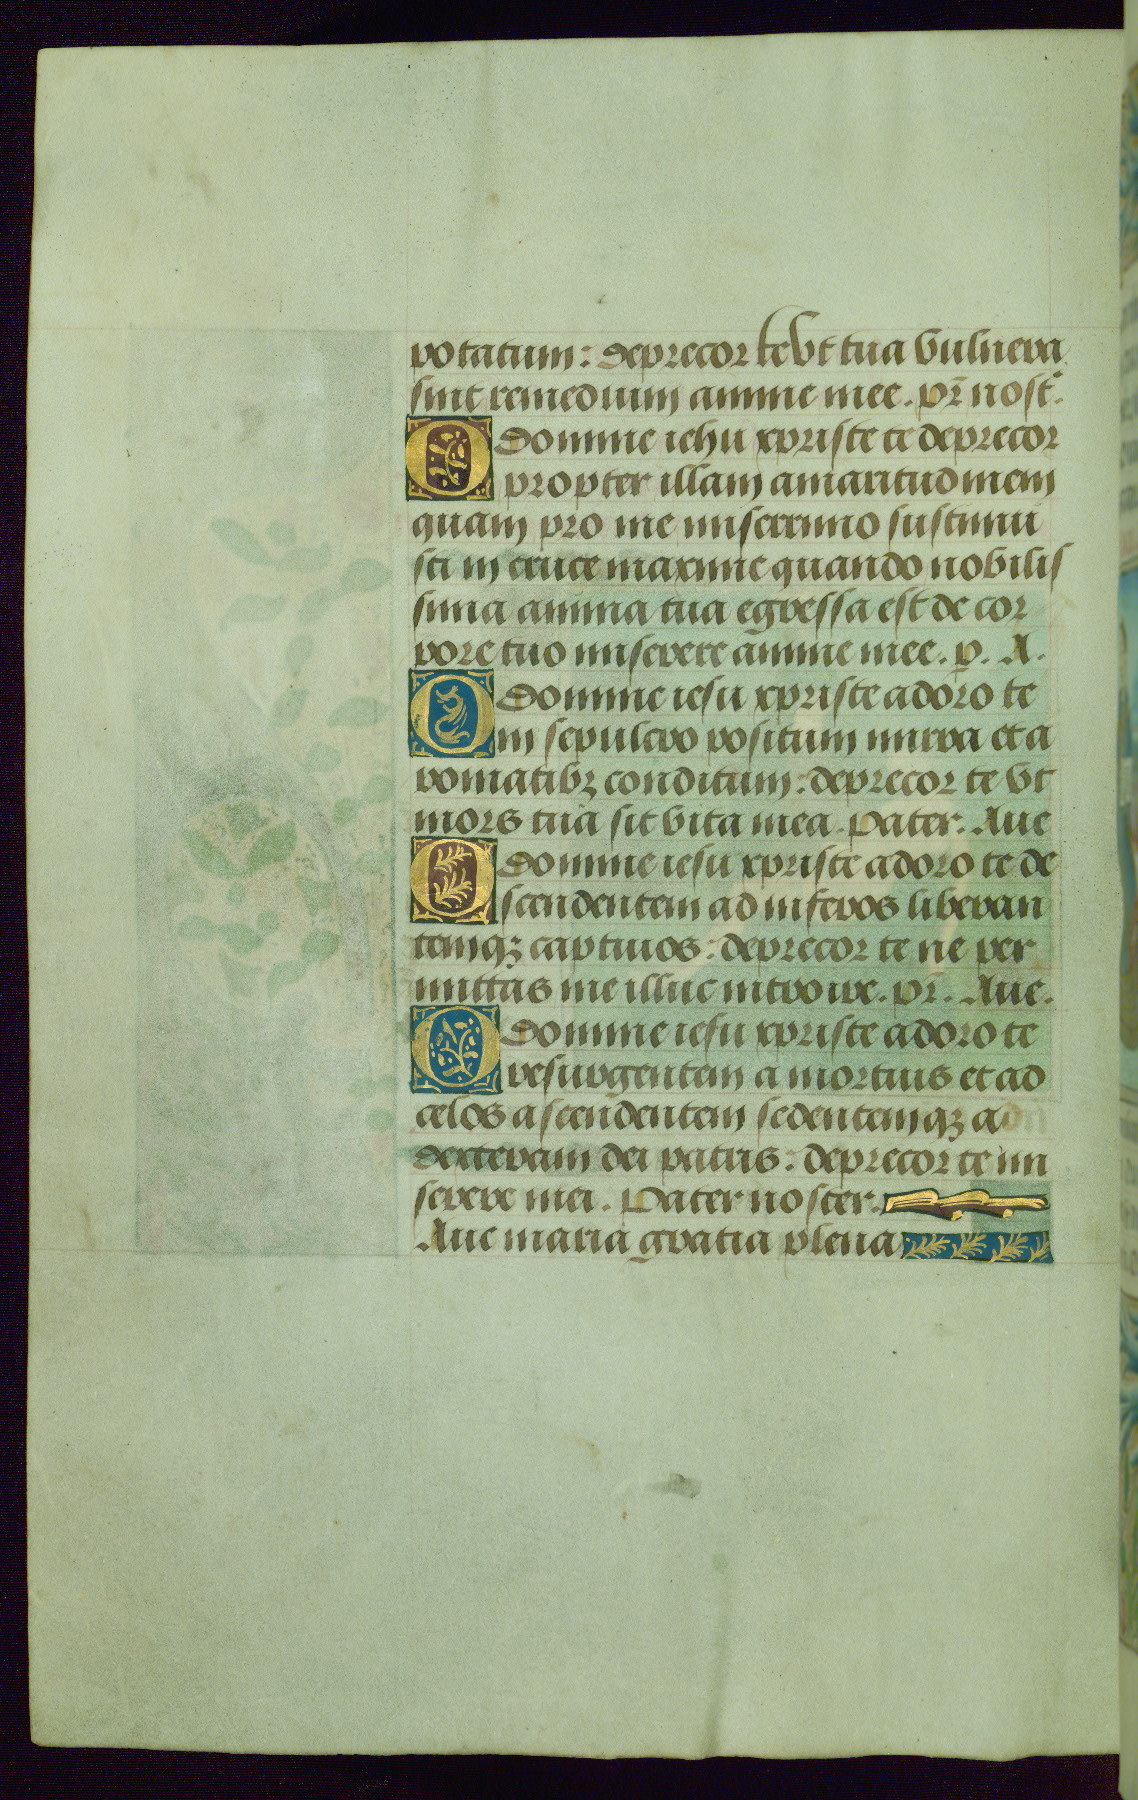 potatum: deprecor te vt tua vulnera
sint remedium anime mee. pr̄ nost̄.
O domine iehu xpriste te deprecor
propter illam amaritudinem
quam pro me miserrimo sustinui
sti in cruce maxime quando nobilis
sima anima tua egressa est de cor
pore tuo miserere anime mee. p. A.
O domine iesu xpriste adoro te
in sepulcro positum mirra et a
romatibꝫ conditum: deprecor te vt
mors tua sit vita mea. Pater. Aue
O domine iesu xpriste adoro te de
scendentem ad inferos liberan
temqꝫ captiuos: deprecor te ne per
mittas me illuc introire. pr̄. Aue.
O domine iesu xpriste adoro te
resurgentem a mortuis et ad
celos ascendentem sedentemqꝫ ad
dexteram dei patris: deprecor te mi
serere mei. Pater noster.
Aue maria gratia plena